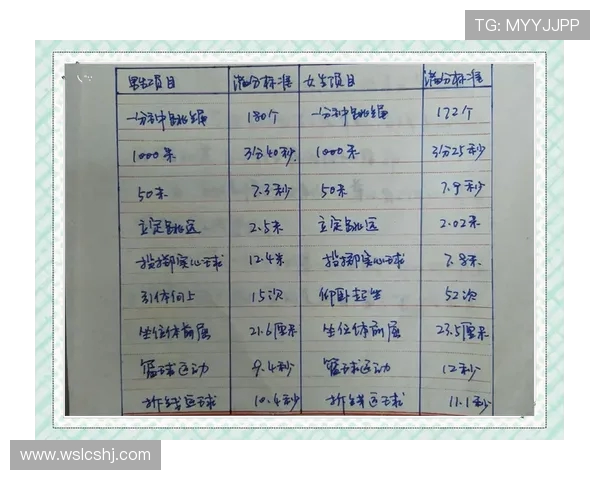 TG: MYYJJPP
男生项目 满分标准 女生项目 满分标准
一分钟跳绳 180个 一分钟跳绳 172个
1000米 3分40秒. 1000米 3分25秒
50米 7.3秒 50米 7.9秒
立定跳远 2.5米 立定跳远 2.02米
投掷实心球 12.4米 投掷实心球 7.8米
引体向上 15次 仰卧起坐 52次
坐位体前屈 21.6厘米 坐位体前屈 23.5厘米
篮球运动 9.4秒 篮球运动 12秒
折线运球 10.4秒 折线运球 11.1秒
www.wslcshj.com